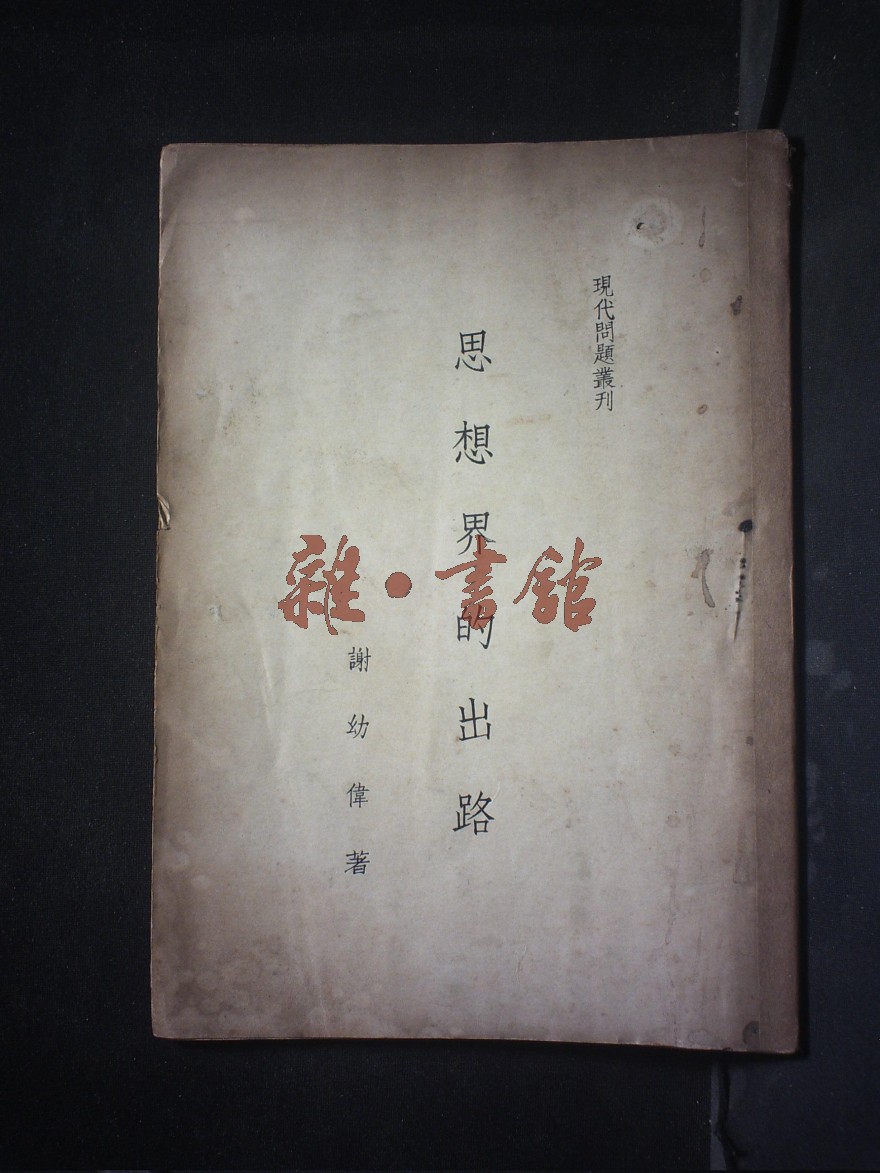 現代問題叢刊
思想界的出路
謝幼偉著
雜·書館